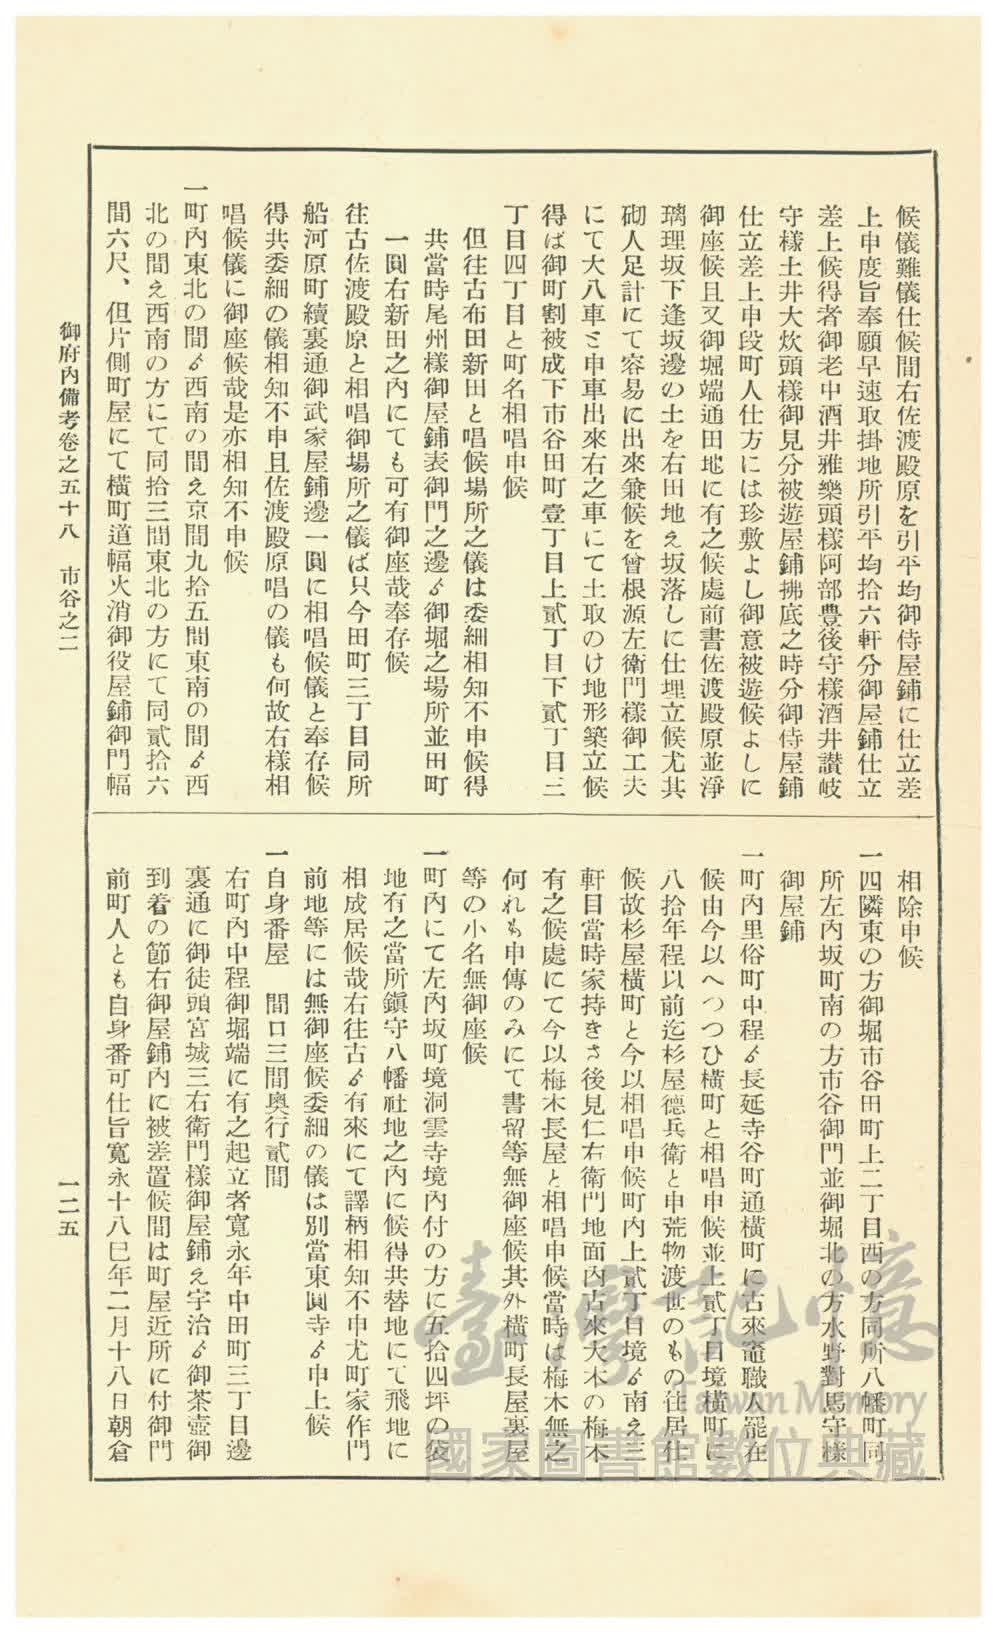 候儀難儀仕候間右佐渡殿原を引平均御侍屋鋪に仕立差
上申度旨奉願早速取掛地所引平均拾六軒分御屋鋪仕立
差上候得者御老中酒井雅樂頭樣阿部豊後守樣酒井讃岐
守樣土井大炊頭樣御見分被遊屋鋪拂底之時分御侍屋鋪
仕立差上申段町人仕方には珍敷よし御意被遊候よしに
御座候且又御堀端通田地に有之候處前書佐渡殿原並淨
璃理坂下逢坂邊の土を右田地え坂落しに仕埋立候尤其
砌人足計にて容易に出來兼候を曾根源左衛門樣御工夫
にて大八車と申車出來右之車にて土取のけ地形築立候
得ば御町割被成下市谷田町壹丁目上貳丁目下貳丁目三
丁目四丁目と町名相唱申候
但往古布田新田と唱候場所之儀は委細相知不申候得
共當時尾州樣御屋鋪表御門之邊ゟ御堀之場所並田町
一圓右新田之内にても可有御座哉奉存候
往古佐渡殿原と相唱御場所之儀ば只今田町三丁目同所
船河原町續裏通御武家屋鋪邊一圓に相唱候儀と奉存候
得共委細の儀相知不申且佐渡殿原唱の儀も何故右樣相
唱候儀に御座候哉是亦相知不申候
一町内東北の間ゟ西南の間え京間九拾五間東南の間ゟ西
北の間え西南の方にて同拾三間東北の方にて同貳拾六
間六尺、但片側町屋にて横町道幅火消御役屋鋪御門幅
相除申候
一四隣東の方御堀市谷田町上二丁目西の方同所八幡町同
所左内坂町南の方市谷御門並御堀北の方水野對馬守樣
御屋鋪
一町内里俗町中程ゟ長延寺谷町通横町に古來竈職人罷在
候由今以へつつひ横町と相唱申候並上貳丁目境横町に
八拾年程以前迄杉屋德兵衛と申荒物渡世のもの住居仕
候故杉屋横町と今以相唱申候町内上貳丁目境ゟ南え三
軒目當時家持きさ後見仁右衛門地面内古來大木の梅木
有之候處にて今以梅木長屋と相唱申候當時は梅木無之
何れも申傳のみにて書留等無御座候其外横町長屋裏屋
等の小名無御座候
一町内にて左内坂町境洞雲寺境内付の方に五拾四坪の袋
地有之當所鎭守八幡社地之内に候得共替地にて飛地に
相成居候哉右往古ゟ有來にて譯柄相知不申尤町家作門
前地等には無御座候委細の儀は別當東圓寺ゟ申上候
一自身番屋　間口三間奥行貳間
右町内中程御堀端に有之起立者寛永年中田町三丁目邊
裏通に御徒頭宮城三右衛門樣御屋鋪え宇治ゟ御茶壺御
到着の節右御屋鋪内に被差置候間は町屋近所に付御門
前町人とも自身番可仕旨寛永十八巳年二月十八日朝倉
御府内備考卷之五十八　市谷之二
一二五
臺灣記憶
Taiwan Memory
國家圖書館數位典藏